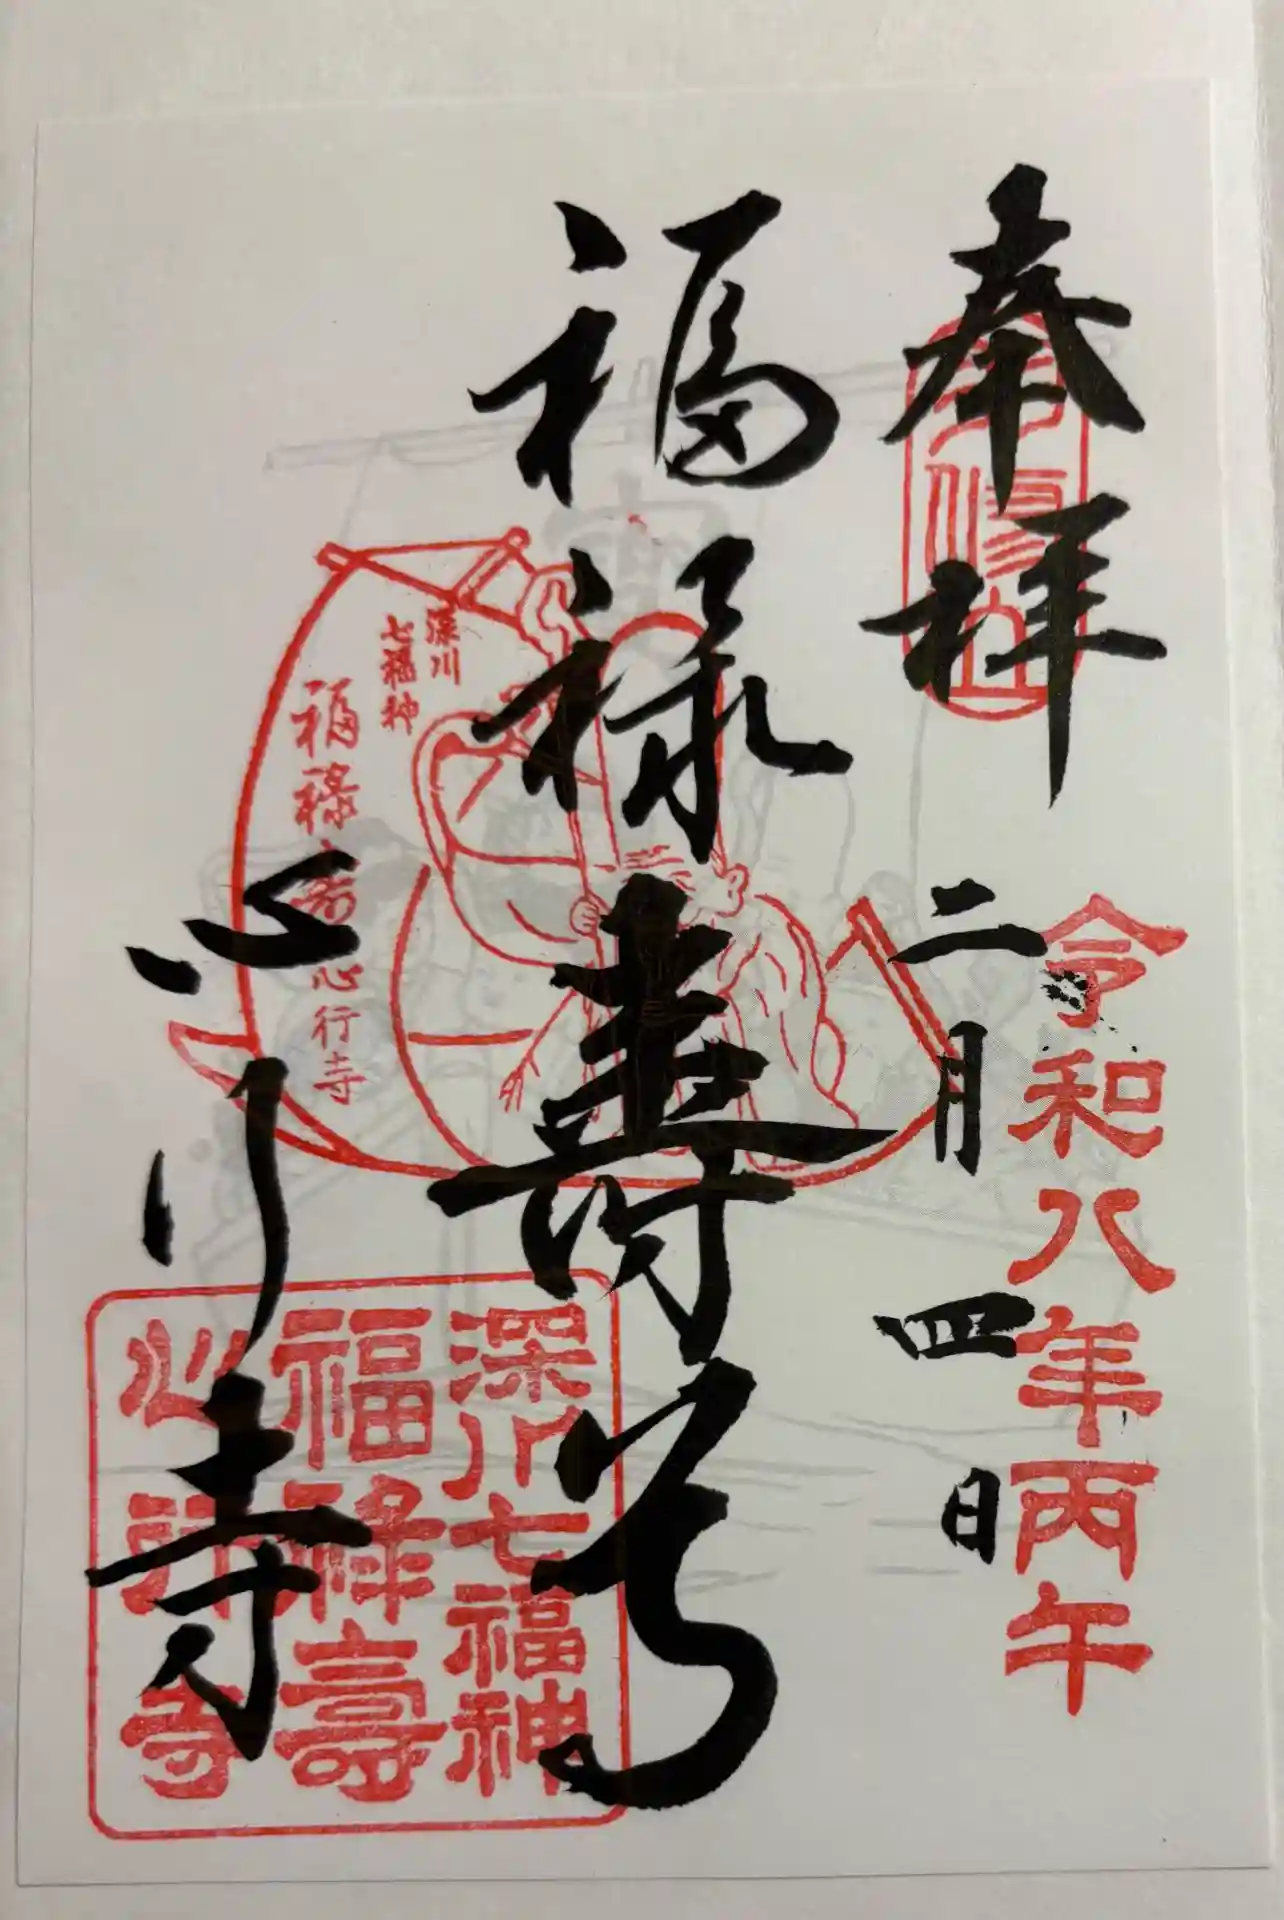 奉拝
令和八年丙午
二月四日
福禄寿尊
心行寺
深川
七福神
福禄寿
心行寺
深川七福神
福禄壽
心行寺